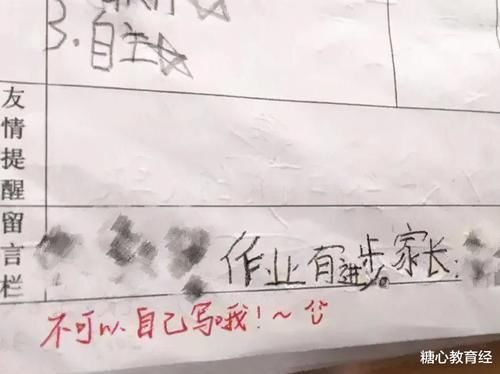 3.自主
友情提醒
留言栏
作业有进步。家长:
不可以自己写哦!~
糖心教育经